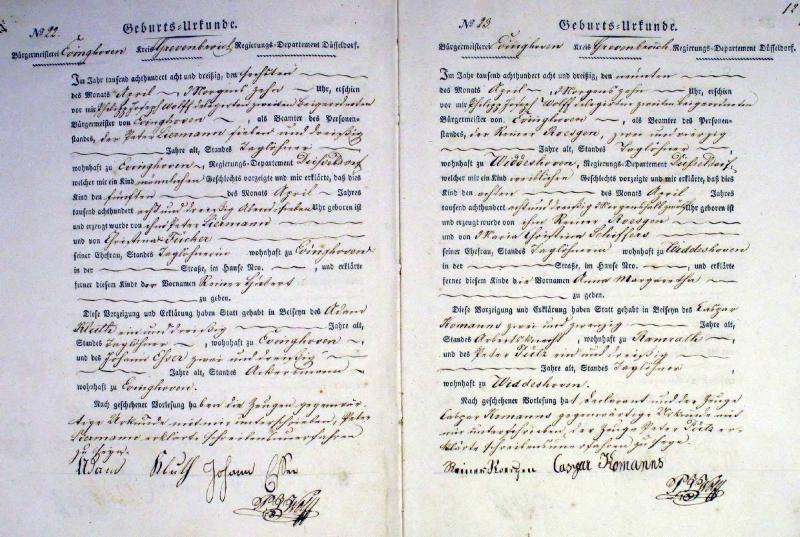 № 22.
Geburts-Urkunde.
Bürgermeisterei Evinghoven Kreis Grevenbroich Regierungs-Departement Düsseldorf.
Im Jahr tausend achthundert acht und dreißig, den sechsten
des Monats April, Morgens zehn Uhr, erschien
vor mir Philipp Joseph Wolff zweiten Beigeordneten
Bürgermeister von Evinghoven, als Beamten des Personen-
standes, der Peter Siemann sieben und dreißig
Jahre alt, Standes Taglöhner
wohnhaft zu Evinghoven, Regierungs-Departement Düsseldorf
welcher mir ein Kind männlichen Geschlechts vorzeigte und mir erklärte, daß dies
Kind den fünften des Monats April Jahres
tausend achthundert acht und dreißig Abends sieben Uhr geboren ist
und erzeugt wurde von ihm Peter Siemann
und von Christina Fischer
seiner Ehefrau, Standes Taglöhnerin wohnhaft zu Evinghoven
in der Straße, im Hause Nro. , und erklärte
ferner diesem Kinde die Vornamen Reiner Hubert
zu geben.
Diese Vorzeigung und Erklärung haben Statt gehabt in Beiseyn des Adam
Kluth ein und dreißig Jahre alt,
Standes Taglöhner, wohnhaft zu Evinghoven
und des Johann Esser zwei und dreißig
Jahre alt, Standes Ackermann
wohnhaft zu Evinghoven.
Nach geschehener Vorlesung haben die Zeugen gegenwär-
tige Urkunde mit mir unterschrieben, Peter
Siemann erklärte schreibensunerfahren
zu seyn.
Adam Kluth Johann Esser
P. J. Wolff
12
№ 23.
Geburts-Urkunde.
Bürgermeisterei Evinghoven Kreis Grevenbroich Regierungs-Departement Düsseldorf.
Im Jahr tausend achthundert acht und dreißig, den neunten
des Monats April, Morgens zehn Uhr, erschien
vor mir Philipp Joseph Wolff zweiten Beigeordneten
Bürgermeister von Evinghoven, als Beamten des Personen-
standes, der Reiner Roesgen, zwei und vierzig
Jahre alt, Standes Taglöhner
wohnhaft zu Widdeshoven, Regierungs-Departement Düsseldorf
welcher mir ein Kind weiblichen Geschlechts vorzeigte und mir erklärte, daß dies
Kind den achten des Monats April Jahres
tausend achthundert acht und dreißig Morgens halb Uhr geboren ist
und erzeugt wurde von ihm Reiner Roesgen
und von Maria Christina Schiffers
seiner Ehefrau, Standes Taglöhnerin wohnhaft zu Widdeshoven
in der Straße, im Hause Nro. , und erklärte
ferner diesem Kinde die Vornamen Anna Margaretha
zu geben.
Diese Vorzeigung und Erklärung haben Statt gehabt in Beiseyn des Caspar
Komanns zwei und zwanzig Jahre alt,
Standes Arbeitsknecht, wohnhaft zu Ramrath
und des Peter Tietz ein und dreißig
Jahre alt, Standes Taglöhner
wohnhaft zu Widdeshoven.
Nach geschehener Vorlesung hat declarant und der Zeuge
Caspar Komanns gegenwärtige Urkunde mit
mir unterschrieben, der Zeuge Peter Tietz er-
klärte schreibensunerfahren zu seyn.
Reiner Roesgen Caspar Komanns
P. J. Wolff